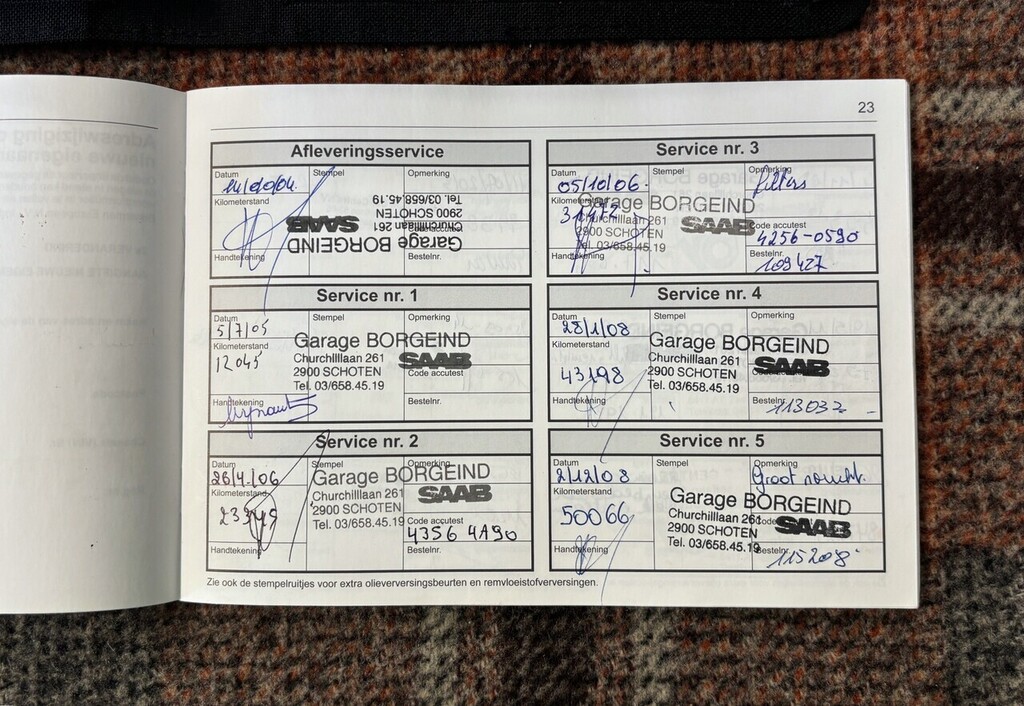 23
Afleveringsservice
Datum
Stempel
Opmerking
Kilometerstand
Tel. 03/658.45.19
2900 SCHOTEN
Churchilllaan 261
SAAB
Garage BORGEIND
Handtekening
Bestelnr.
Service nr. 1
Datum
5/7/05
Stempel
Opmerking
Kilometerstand
12045
Garage BORGEIND
Churchilllaan 261
SAAB
2900 SCHOTEN
Code accutest
Tel. 03/658.45.19
Handtekening
Bestelnr.
Service nr. 2
Datum
26/4/06
Stempel
Opmerking
Garage BORGEIND
Kilometerstand
Churchilllaan 261
SAAB
2900 SCHOTEN
Tel. 03/658.45.19
Code accutest
4356 4A90
Handtekening
Bestelnr.
Service nr. 3
Datum
05/10/06
Stempel
Opmerking
filters
Kilometerstand
Garage BORGEIND
Churchilllaan 261
SAAB
2900 SCHOTEN
Tel. 03/658.45.19
Code accutest
4256-0590
Handtekening
Bestelnr.
109427
Service nr. 4
Datum
28/1/08
Stempel
Opmerking
Kilometerstand
43198
Garage BORGEIND
Churchilllaan 261
SAAB
2900 SCHOTEN
Tel. 03/658.45.19
Handtekening
Bestelnr.
113032
Service nr. 5
Datum
2/12/08
Stempel
Opmerking
Groot
Kilometerstand
50066
Garage BORGEIND
Churchilllaan 261
SAAB
2900 SCHOTEN
Tel. 03/658.45.19
Handtekening
Bestelnr.
115208
Zie ook de stempelruitjes voor extra olieverversingsbeurten en remvloeistofverversingen.